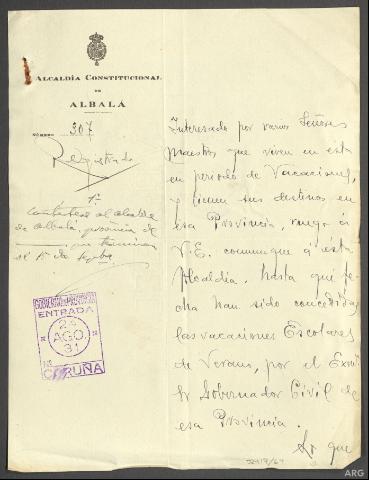 ALCALDÍA CONSTITUCIONAL
DE
ALBALÁ
NÚMERO 307
Registrado
1ª
Contéstese al alcalde
de Albalá, provincia de
que terminan
el 1º de Sepbre
ENTRADA
24
AGO.
31
CORUÑA
Interesado por varios Señores
Maestros que viven en esta
en periodo de Vacaciones,
y tienen sus destinos en
esa Provincia, ruego á
V.E. comunique á esta
Alcaldia, hasta que fe-
cha han sido concedidas
las vacaciones Escolares
de Verano, por el Exmº
Sr Gobernador Civil de
esa Provincia.
Lo que
ARG